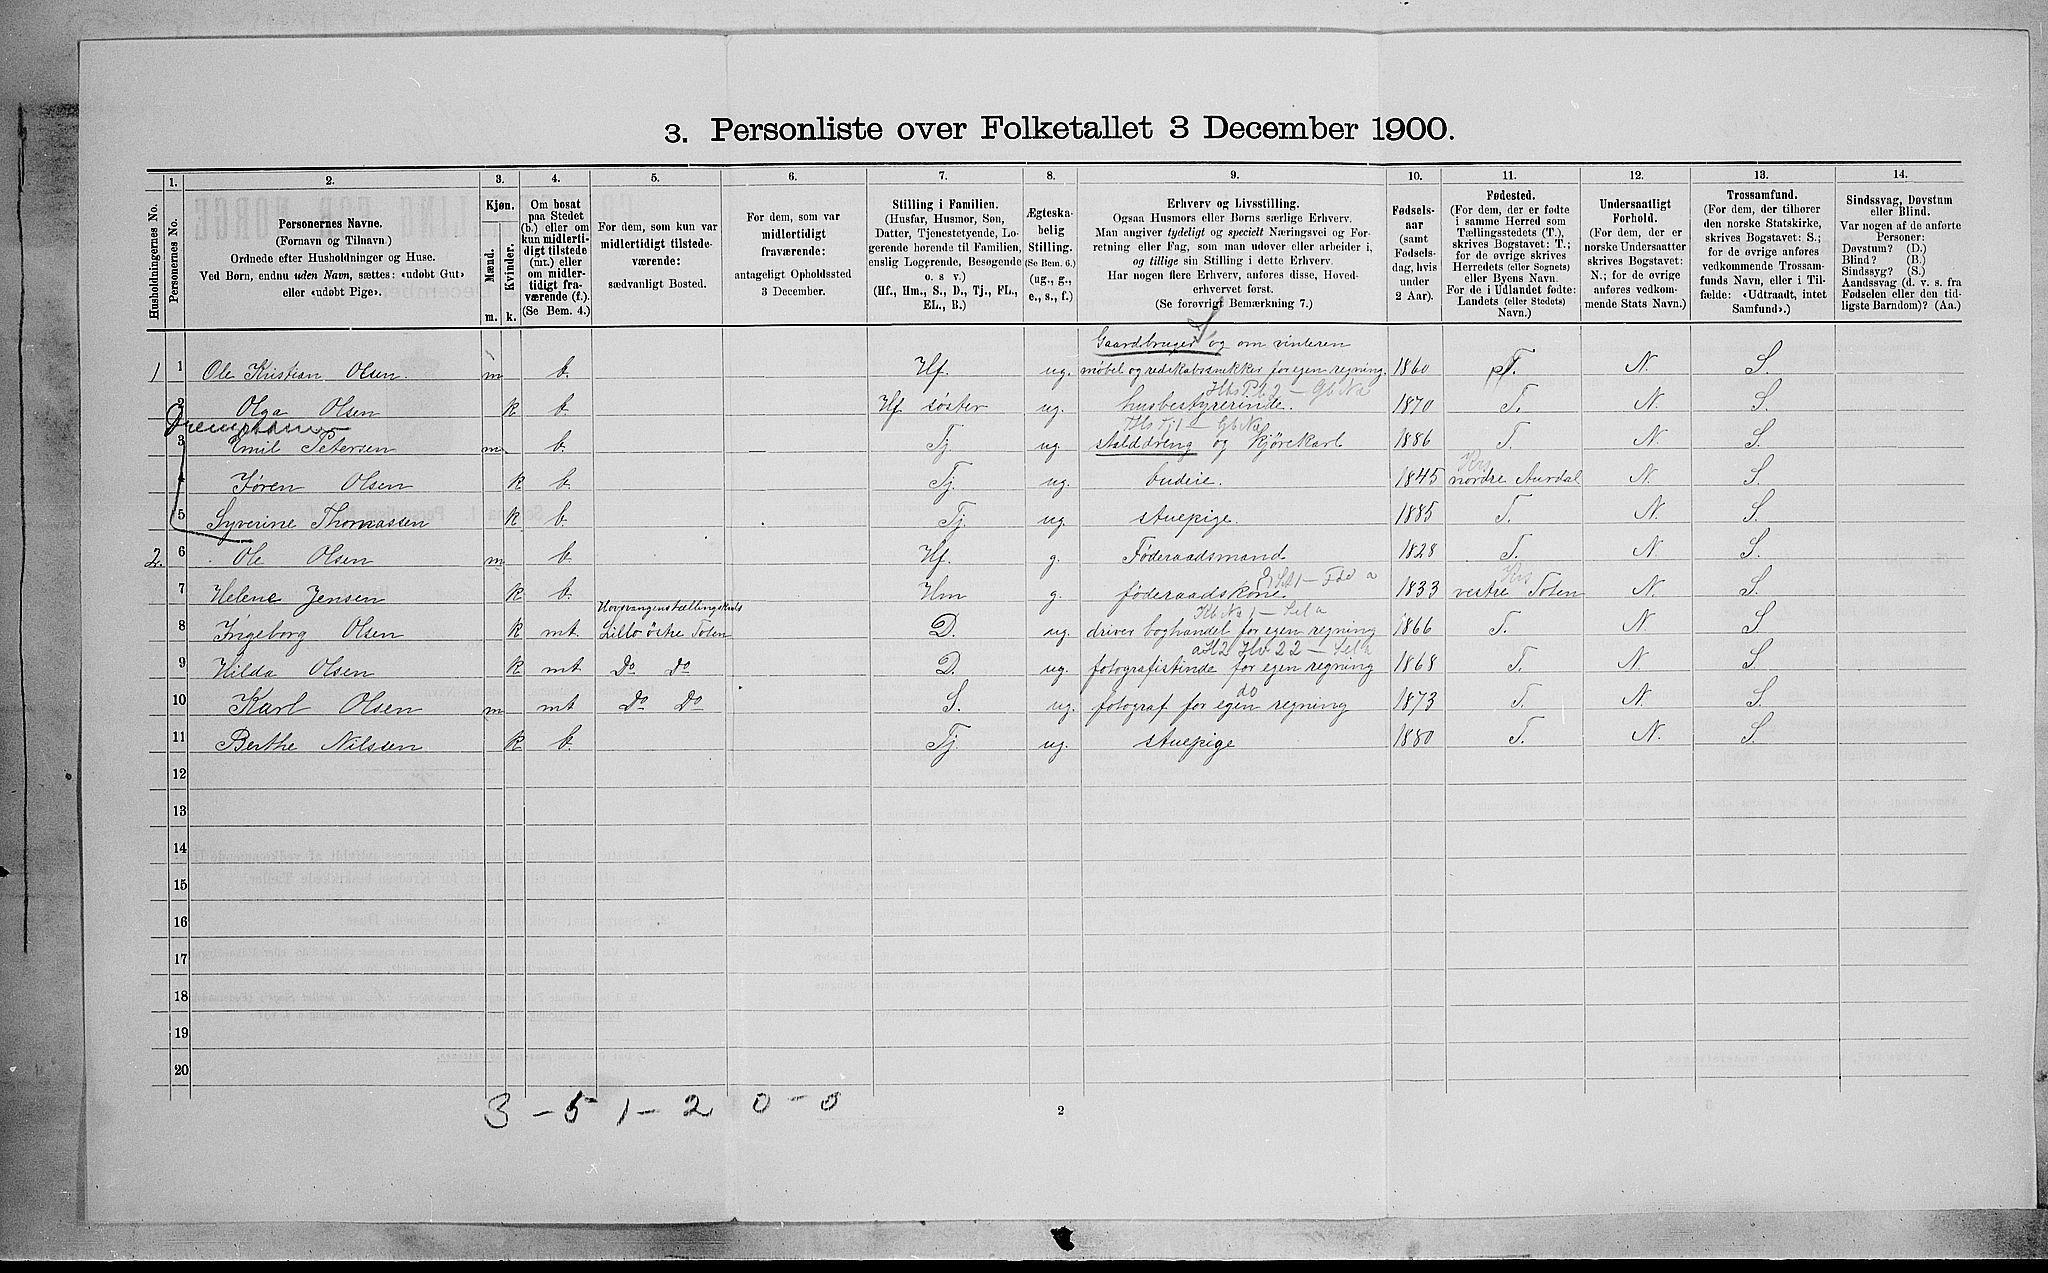 3. Personliste over Folketallet 3 December 1900.
Husholdningernes No.
1.
Personernes No.
2.
Personernes Navne.
(Fornavn og Tilnavn.)
Ordnede efter Husholdninger og Huse.
Ved Børn, endnu uden Navn, sættes: «udøbt Gut»
eller «udøbt Pige».
3.
Kjøn.
Mænd.
Kvinder.
m. k.
4.
Om bosat
paa Stedet
(b.) eller om
kun midlerti-
digt tilstede
(mt.) eller
om midler-
tidigt fra-
værende (f.).
(Se Bem. 4.)
5.
For dem, som kun var
midlertidigt tilstede-
værende:
sædvanligt Bosted.
6.
For dem, som var
midlertidigt
fraværende:
antageligt Opholdssted
3 December.
7.
Stilling i Familien.
(Husfar, Husmor, Søn,
Datter, Tjenestetyende, Lo-
gerende hørende til Familien,
enslig Logerende, Besøgende
o. s. v.)
(Hf., Hm., S., D., Tj., FL.,
EL., B.)
8.
Ægteska-
belig
Stilling.
(Se Bem. 6.)
(ug., g.,
e., s., f.)
9.
Erhverv og Livsstilling.
Ogsaa Husmors eller Børns særlige Erhverv.
Man angiver tydeligt og specielt Næringsvei og For-
retning eller Fag, som man udøver eller arbeider i,
og tillige sin Stilling i dette Erhverv.
Har nogen flere Erhverv, anføres disse, Hoved-
erhvervet først.
(Se forøvrigt Bemærkning 7.)
10.
Fødsels-
aar
(samt
Fødsels-
dag, hvis
under
2 Aar).
11.
Fødested.
(For dem, der er fødte
i samme Herred som
Tællingsstedets (T.),
skrives Bogstavet: T.;
for de øvrige skrives
Herredets (eller Sognets)
eller Byens Navn.
For de i Udlandet fødte:
Landets (eller Stedets)
Navn.)
12.
Undersaatligt
Forhold.
(For dem, der er
norske Undersaatter
skrives Bogstavet:
N.; for de øvrige
anføres vedkom-
mende Stats Navn.)
13.
Trossamfund.
(For dem, der tilhører
den norske Statskirke,
skrives Bogstavet: S.;
for de øvrige anføres
vedkommende Trossam-
funds Navn, eller i Til-
fælde: «Udtraadt, intet
Samfund».)
14.
Sindssvag, Døvstum
eller Blind.
Var nogen af de anførte
Personer:
Døvstum? (D.)
Blind? (B.)
Sindssyg? (S.)
Aandssvag (d. v. s. fra
Fødselen eller den tid-
ligste Barndom)? (Aa.)
Gaardbruger og om vinteren
1 1 Ole Kristian Olsen. m b. Hf. ug. møbel og redskabssnekker for egen regning. 1860 T. N. S.
Hbs P. b 2 – Gb Na
2 Olga Olsen k b. Hf søster ug. husbestyrerinde. 1870 T. N. S.
Tls Tj 1 – Gb Na
3 Emil Petersen m. b. Tj ug stalddreng og kjørekarl 1886 T. N. S.
Krs
4 Jøren Olsen k b. Tj. ug. budeie. 1845 nordre Aurdal N. S.
5 Syverine Thomassen k b. Tj ug stuepige. 1885 T. N. S.
2. 6 Ole Olsen m b. Hf. g. Føderaadsmand 1828 T. N S.
Krs
7 Helene Jensen k b. Hm g. føderaadskone. 1833 vestre Toten N. S.
8 Ingeborg Olsen k mt. Lillo østre Toten D. ug. driver boghandel for egen regning 1866 T. N. S.
9 Hilda Olsen k mt Do Do D. ug. fotografistinde for egen regning 1868 T. N. S.
do
10 Karl Olsen m mt Do Do S. ug. fotograf for egen regning 1873 T. N. S.
11 Berthe Nilsen k b. Tj ug. stuepige 1880 T. N. S.
12
13
14
15
16
17
18
19
20
3 – 5 1 – 2 0 – 0
2